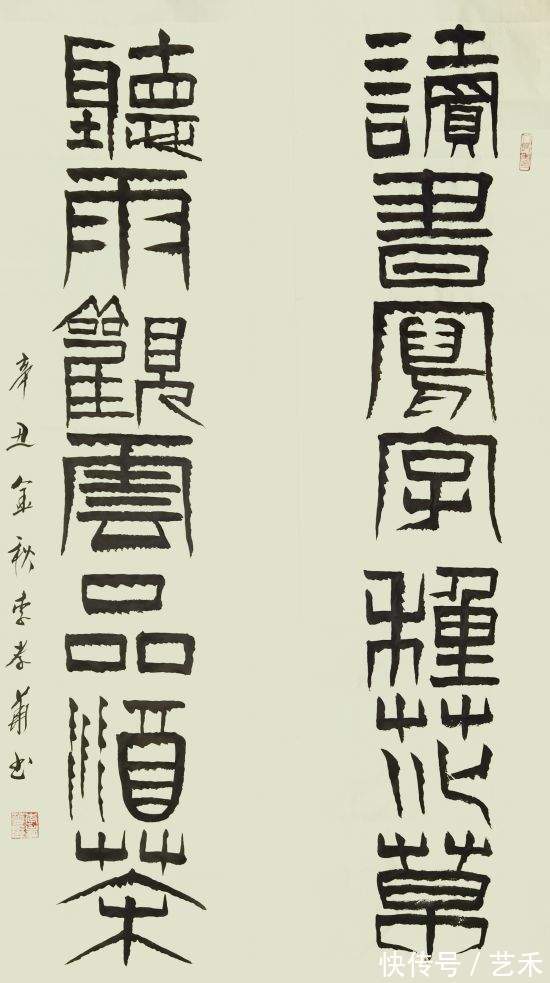 讀書寫字種花草
聽雨觀雲品酒茶
辛丑金秋李孝书
快传号 / 艺禾